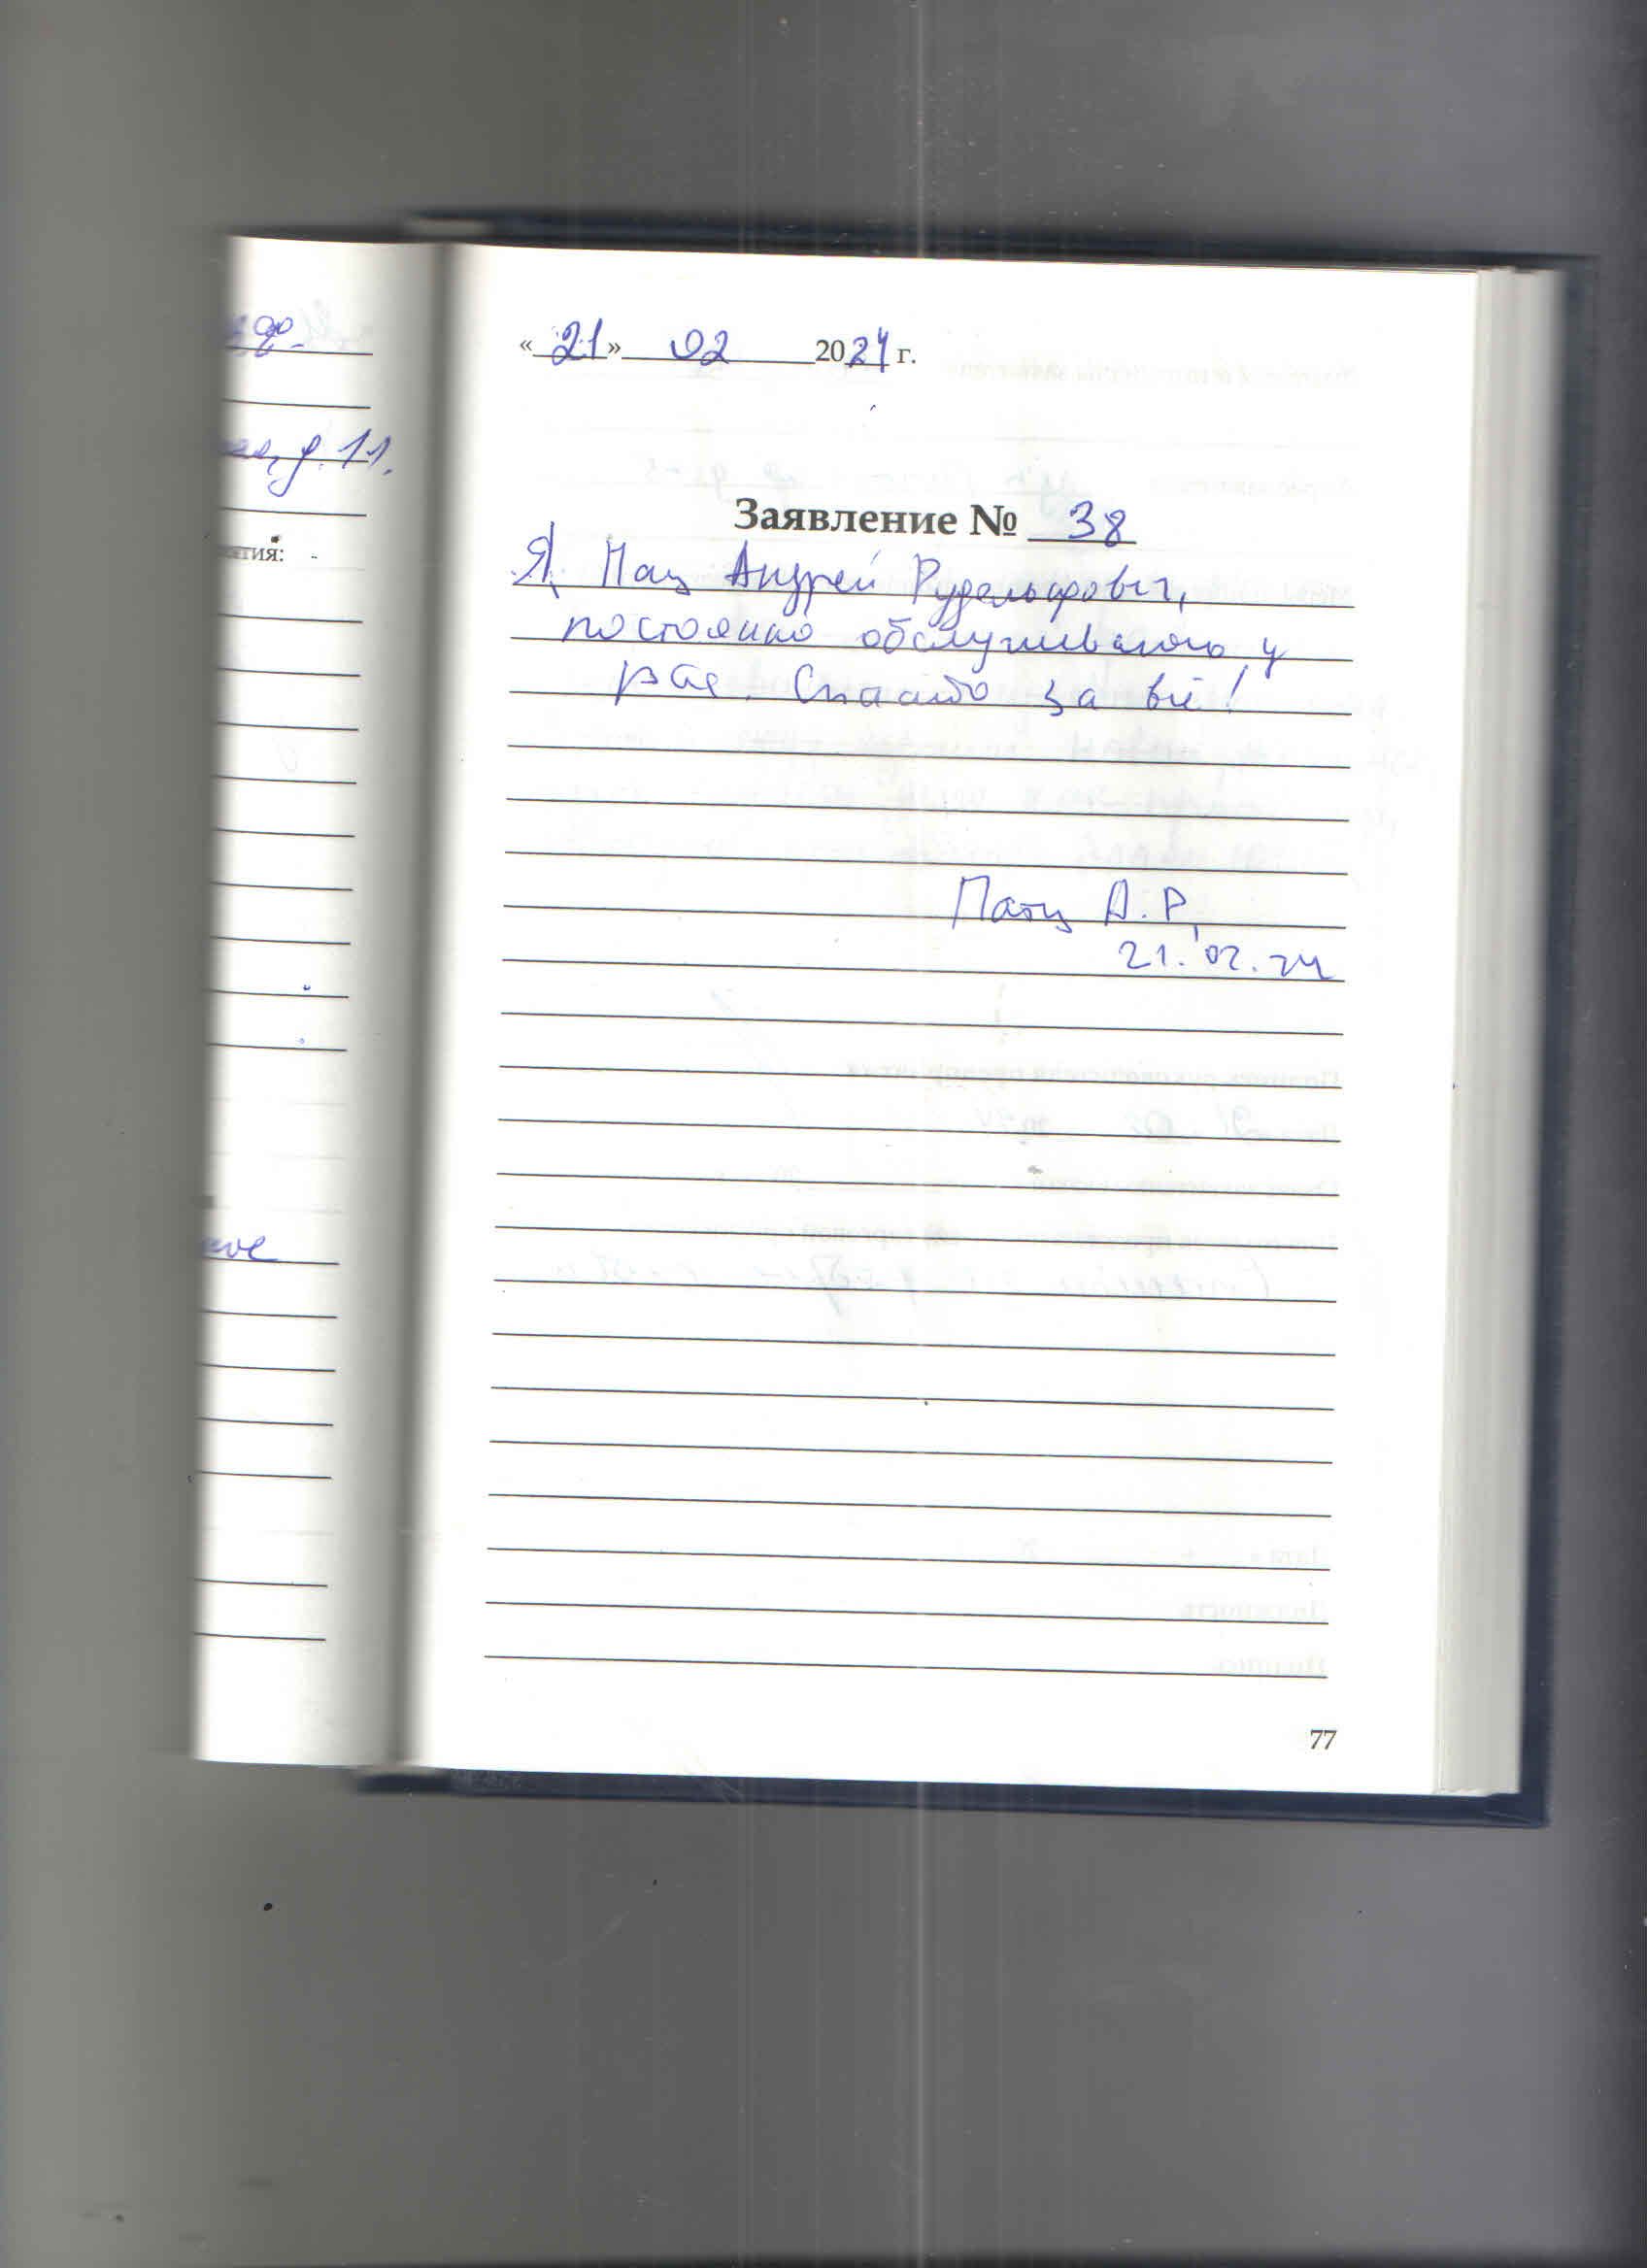 др.
д. 11.
ятия:
ное
«21» 02 2024 г.
Заявление № 38
Я, Пац Андрей Рудольфович,
постоянно обслуживаюсь у
вас. Спасибо за всё!
Пац А.Р.
21.02.24
77